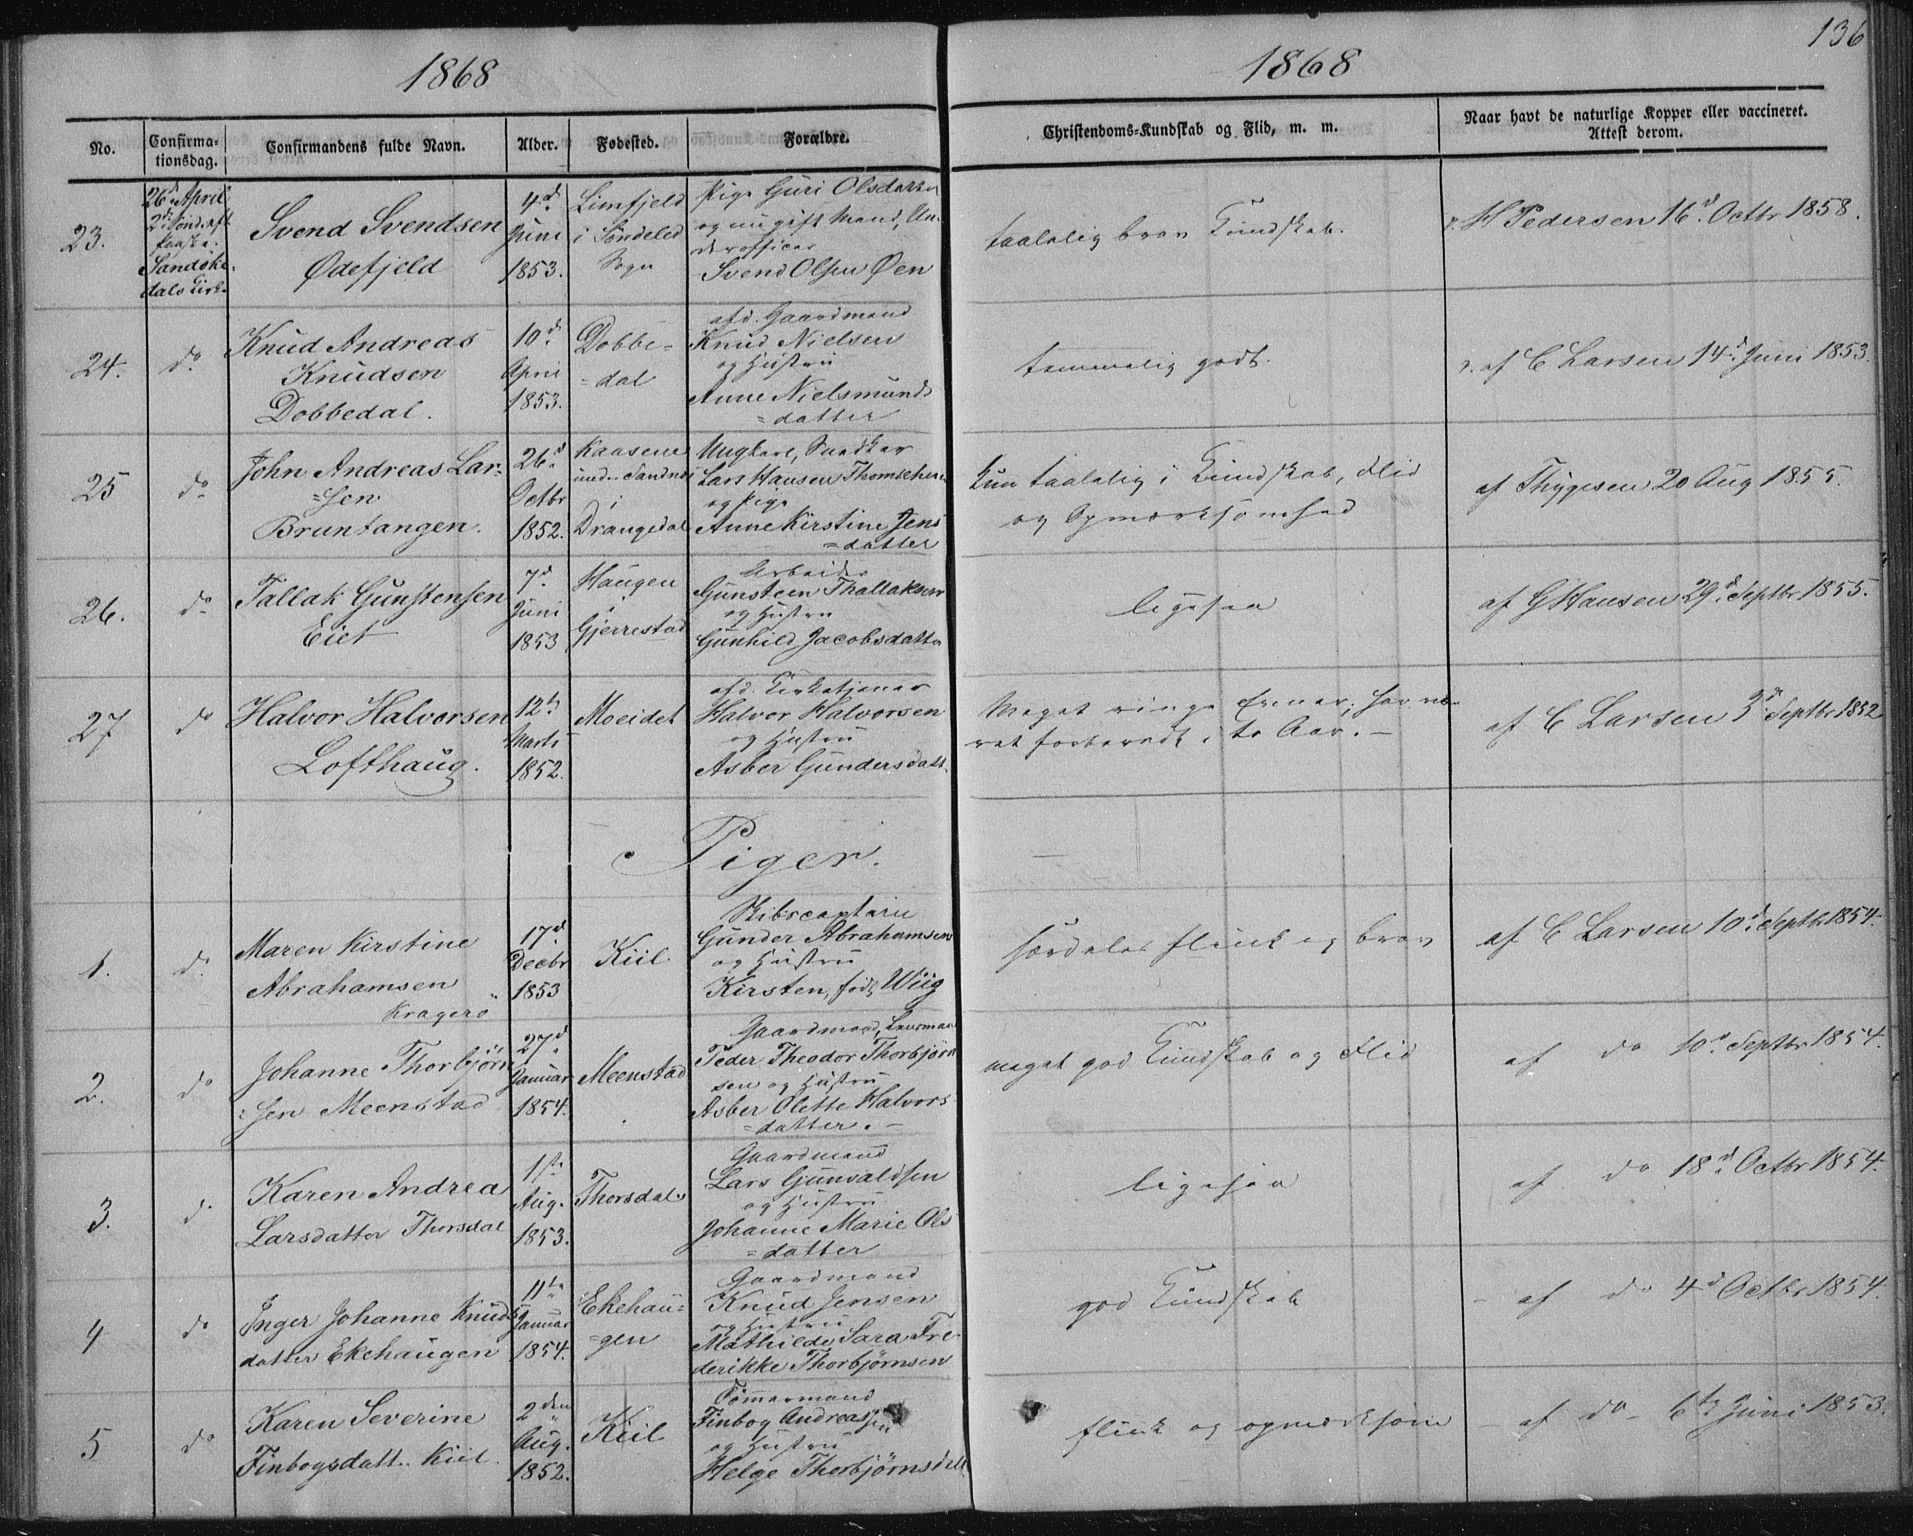 1868
1868
136
No.
Confirma-
tionsdag.
Confirmandens fulde Navn.
Alder.
Fødested.
Forældre.
Christendoms-Kundskab og Flid, m. m.
Naar havt de naturlige Kopper eller vaccineret.
Attest derom.
23.
26d April
2d Sønd. eft.
Paaske.
Sandøke-
dals Kirke
Svend Svendsen
Ødefjeld
4d
Juni
1853.
Limfjeld
i Søndeled
Sogn
Pige Guri Olsdatter
og ugift Mand, Un-
derofficer
Svend Olsen Øen
taalelig brav Kundskab.
H Pedersen 16d Octbr 1858.
24.
do
Knud Andreas
Knudsen
Dobbedal.
10d
April
1853.
Dobbe=
=dal
afd. Gaardmand
Knud Nielsen
og Hustru
Anne Nielsmunds
=datter
temmelig godt.
af C Larsen 14d Juni 1853.
25
do
John Andreas Lar=
=sen
Bruntangen.
26d
Octbr
1852.
Kaasene
und. Sandnes
i
Drangedal
Ungkarl,
Lars Hansen
og Pige
Anne Kirstine Jens
=datter
Kun taalelig i Kundskab, Flid
og Opmærksomhed
af Thygesen 20 Aug 1855.
26.
do
Tallak Gunstensen
Eiet
7d
Juni
1853
Haugen
Gjerrestad
Arbeider
Gunsteen Thallaksen
og Hustru
Gunhild Jacobsdatter
ligesaa
af G Hansen 29d Septbr 1855.
27
do
Halvor Halvorsen
Lofthaug.
12te
Marts
1852.
Moeidet
afd. Kirketjener
Halvor Halvorsen
og Hustru
Asber Gundersdatt.
Meget ringe Evner; har væ-
ret forberedt i to Aar.-
af C Larsen 3d Septbr 1852
Piger.
1.
do
Maren Kirstine
Abrahamsen
Kragerö
17d
Decbr
1853
Kiil
Skibscaptain
Gunder Abrahamsen
og Hustru
Kirsten, født Wiig
særdeles flink og brav
af C Larsen 10d Septbr 1854.
2.
do
Johanne Thorbjørn
=sen Meenstad
27d
Januar
1854.
Meenstad
Gaardmand, Lensmand
Peder Theodor Thorbjørn
sen og Hustru
Asber Olette Halvors
=datter.-
meget god Kundskab og Flid
af do 10d Septbr 1854.
3.
do
Karen Andrea
Larsdatter Thorsdal
1ste
Aug.
1853.
Thorsdal
Gaardmand
Lars Gunvaldsen
og Hustru
Johanne Marie Ols
=datter
ligesaa
af do 18d Octbr 1854.
4
do
Inger Johanne Knuds
datter Ekehaugen
11te
Januar
1854.
Ekehau=
=gen
Gaardmand
Knud Jensen
og Hustru
Mathilde Sara Fre-
derikke Thorbjørnsen
god Kundskab
- af do 4d Octbr 1854.
5
do
Karen Severine
Finbogsdatt. Kiil
2den
Aug.
1852.
Kiil
Tømmermand
Finbog Andreassen
og Hustru
Helge Thorbjørnsdatt
flink og opmærksom
- af do - 6te Juni 1853.